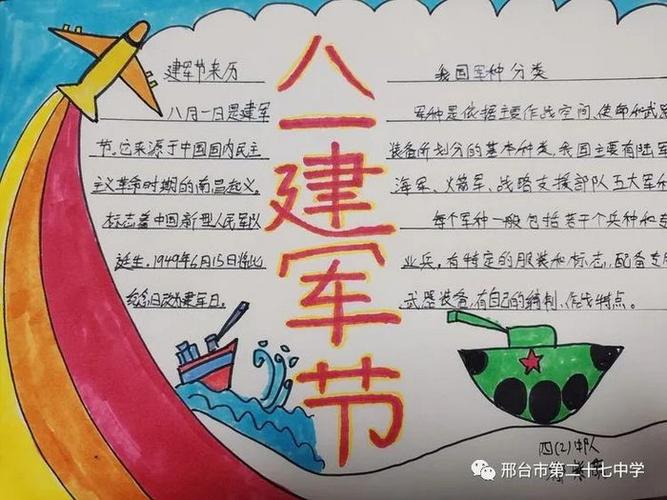 八一建军节
建军节来历
八月一日是建军
节,它来源于中国国内民主
主义革命时期的南昌起义,
标志着中国新型人民军队
诞生,1949年6月15日将此
纪念日改为建军日。
我国军种分类
军种是依据主要作战空间、使命和武
装备所划分的基本种类,我国主要有陆军
海军、火箭军、战略支援部队五大军种
每个军种一般包括若干个兵种和
业兵,有特定的服装和标志,配备专
武器装备,有自己的编制、作战特点。
四(2)中队
邢台市第二十七中学